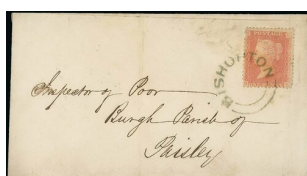 POSTAGE
BISHOPTON
Inspector of Poor
Burgh Parish of
Paisley